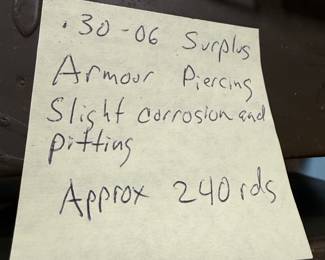 .30-06 Surplus
Armour Piercing
Slight corrosion and
pitting
Approx 240 rds